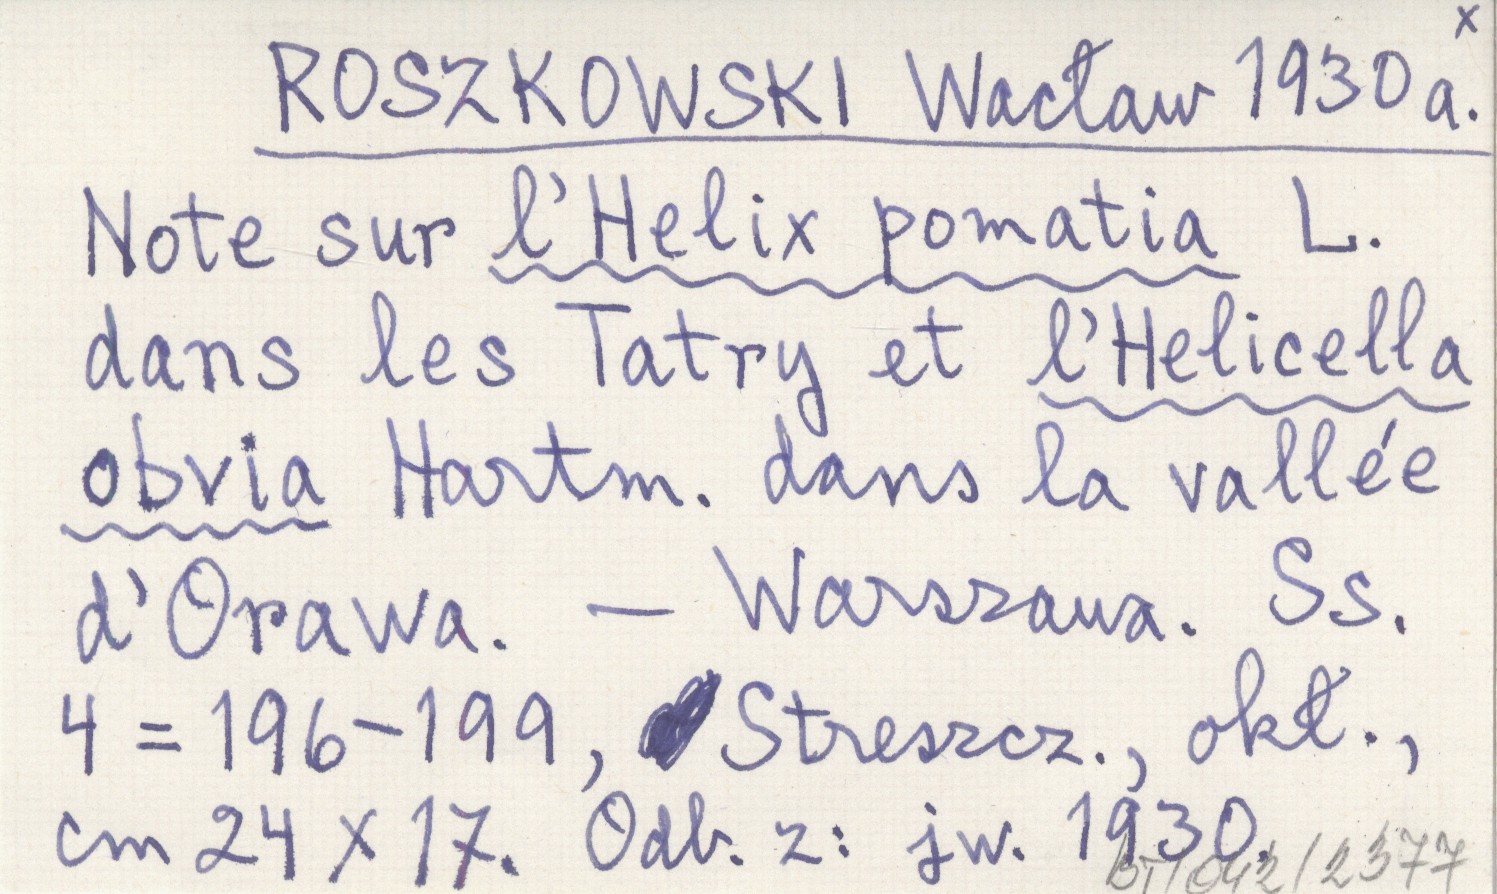 x
ROSZKOWSKI Wacław 1930 a.
Note sur l'Helix pomatia L.
dans les Tatry et l'Helicella
obvia Hartm. dans la vallée
d'Orawa. — Warszawa. Ss.
4 = 196-199, Streszcz., okł.,
cm 24 x 17. Odb. z: jw. 1930.
BT/042/2377